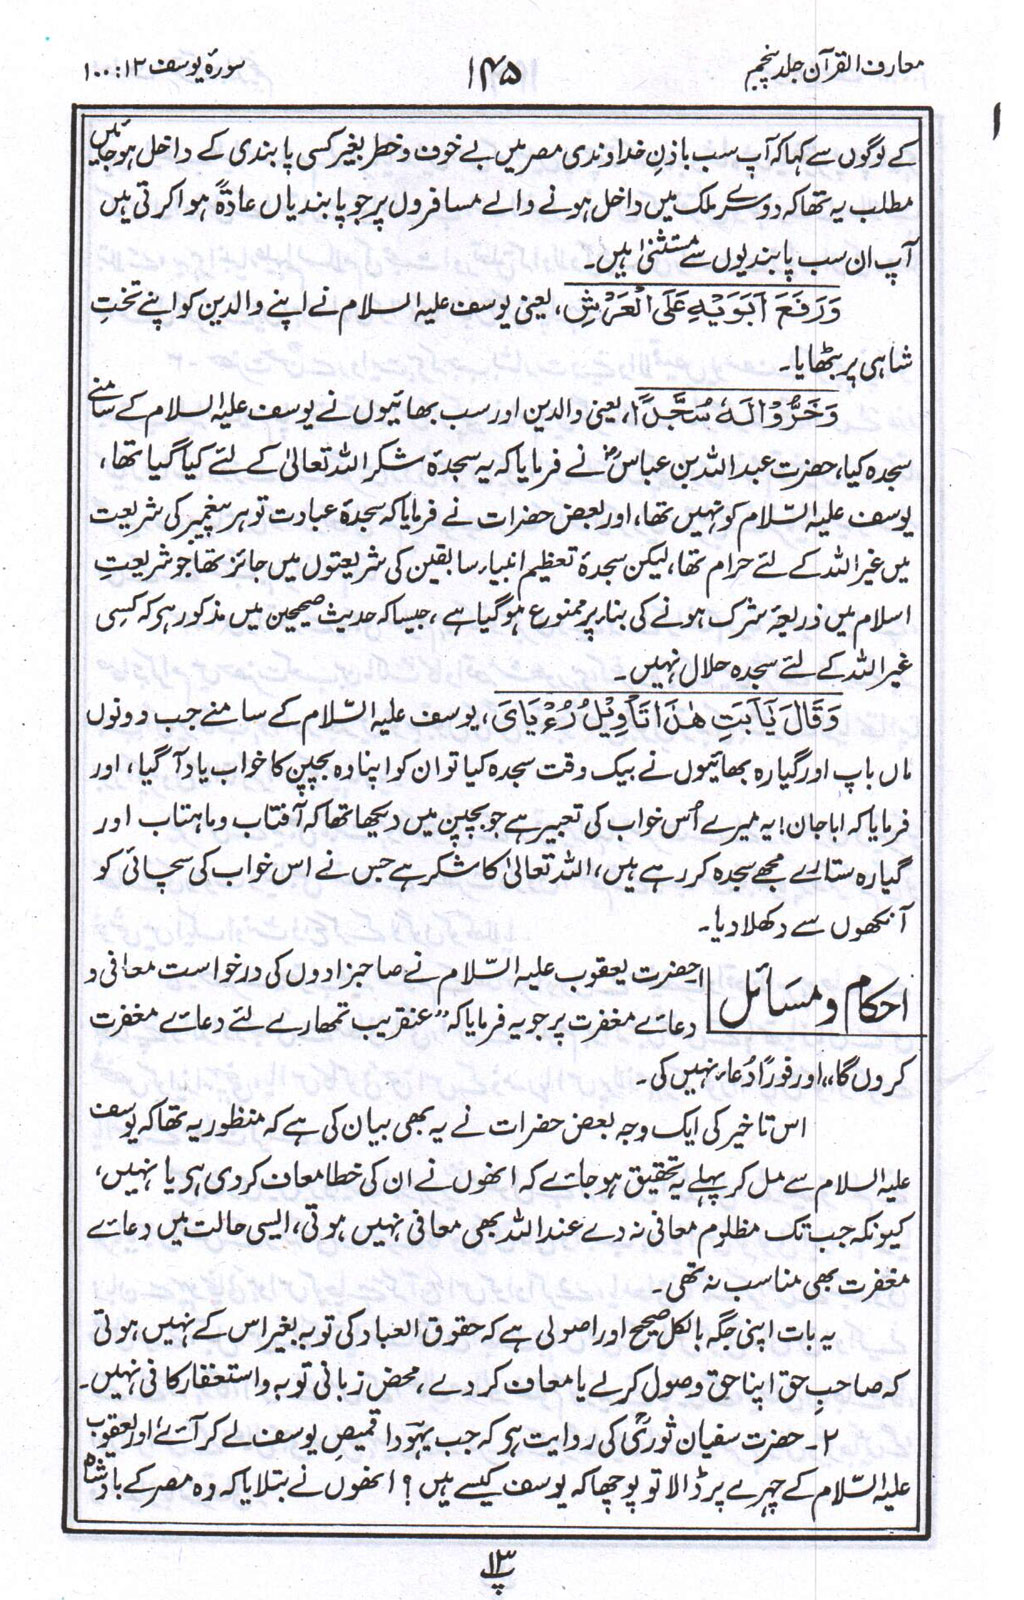 معارف القرآن جلد پنجم
۱۴۵
سورۂ یوسف ۱۲ : ۱۰۰
کے لوگوں سے کہا کہ آپ سب باذنِ خداوندی مصر میں بے خوف و خطر بغیر کسی پابندی کے داخل ہوجائیں
مطلب یہ تھا کہ دوسرے ملک میں داخل ہونے والے مسافروں پر جو پابندیاں عادۃً ہوا کرتی ہیں
آپ ان سب پابندیوں سے مستثنیٰ ہیں۔
وَرَفَعَ اَبَوَیْہِ عَلَی الْعَرْشِ، یعنی یوسف علیہ السلام نے اپنے والدین کو اپنے تختِ
شاہی پر بٹھایا۔
وَخَرُّوْا لَہٗ سُجَّدًا، یعنی والدین اور سب بھائیوں نے یوسف علیہ السلام کے سامنے
سجدہ کیا، حضرت عبداللہ بن عباسؓ نے فرمایا کہ یہ سجدۂ شکر اللہ تعالیٰ کے لئے کیا گیا تھا،
یوسف علیہ السّلام کو نہیں تھا، اور بعض حضرات نے فرمایا کہ سجدۂ عبادت تو ہر پیغمبر کی شریعت
میں غیر اللہ کے لئے حرام تھا، لیکن سجدۂ تعظیم انبیاء سابقین کی شریعتوں میں جائز تھا جو شریعتِ
اسلام میں ذریعۂ شرک ہونے کی بناء پر ممنوع ہوگیا ہے، جیسا کہ حدیث صحیحین میں مذکور ہی کہ کسی
غیر اللہ کے لئے سجدہ حلال نہیں۔
وَقَالَ یٰۤاَبَتِ ھٰذَا تَاْوِیْلُ رُءْیَایَ، یوسف علیہ السّلام کے سامنے جب دونوں
ماں باپ اور گیارہ بھائیوں نے بیک وقت سجدہ کیا تو ان کو اپنا وہ بچپن کا خواب یاد آگیا، اور
فرمایا کہ ابا جان! یہ میرے اُس خواب کی تعبیر ہے جو بچپن میں دیکھا تھا کہ آفتاب و ماہتاب اور
گیارہ ستارے مجھے سجدہ کر رہے ہیں، اللہ تعالیٰ کا شکر ہے جس نے اس خواب کی سچائی کو
آنکھوں سے دکھلا دیا۔
احکام و مسائل
۱۔ حضرت یعقوب علیہ السّلام نے صاحبزادوں کی درخواست معافی و
دعائے مغفرت پر جو یہ فرمایا کہ ”عنقریب تمھارے لئے دعائے مغفرت
کروں گا“ اور فورًا دُعاء نہیں کی۔
اس تاخیر کی ایک وجہ بعض حضرات نے یہ بھی بیان کی ہے کہ منظور یہ تھا کہ یوسف
علیہ السلام سے مل کر پہلے یہ تحقیق ہوجائے کہ انھوں نے ان کی خطا معاف کردی ہی یا نہیں،
کیونکہ جب تک مظلوم معافی نہ دے عند اللہ بھی معافی نہیں ہوتی، ایسی حالت میں دعائے
مغفرت بھی مناسب نہ تھی۔
یہ بات اپنی جگہ بالکل صحیح اور اصولی ہے کہ حقوق العباد کی توبہ بغیر اس کے نہیں ہوتی
کہ صاحبِ حق اپنا حق وصول کرلے یا معاف کردے، محض زبانی توبہ و استغفار کافی نہیں۔
۲۔ حضرت سفیان ثوریؒ کی روایت ہی کہ جب یہودا قمیصِ یوسف لے کر آئے، اور یعقوب
علیہ السّلام کے چہرے پر ڈالا تو پوچھا کہ یوسف کیسے ہیں؟ انھوں نے بتلایا کہ وہ مصر کے بادشاہ
پ۱۳